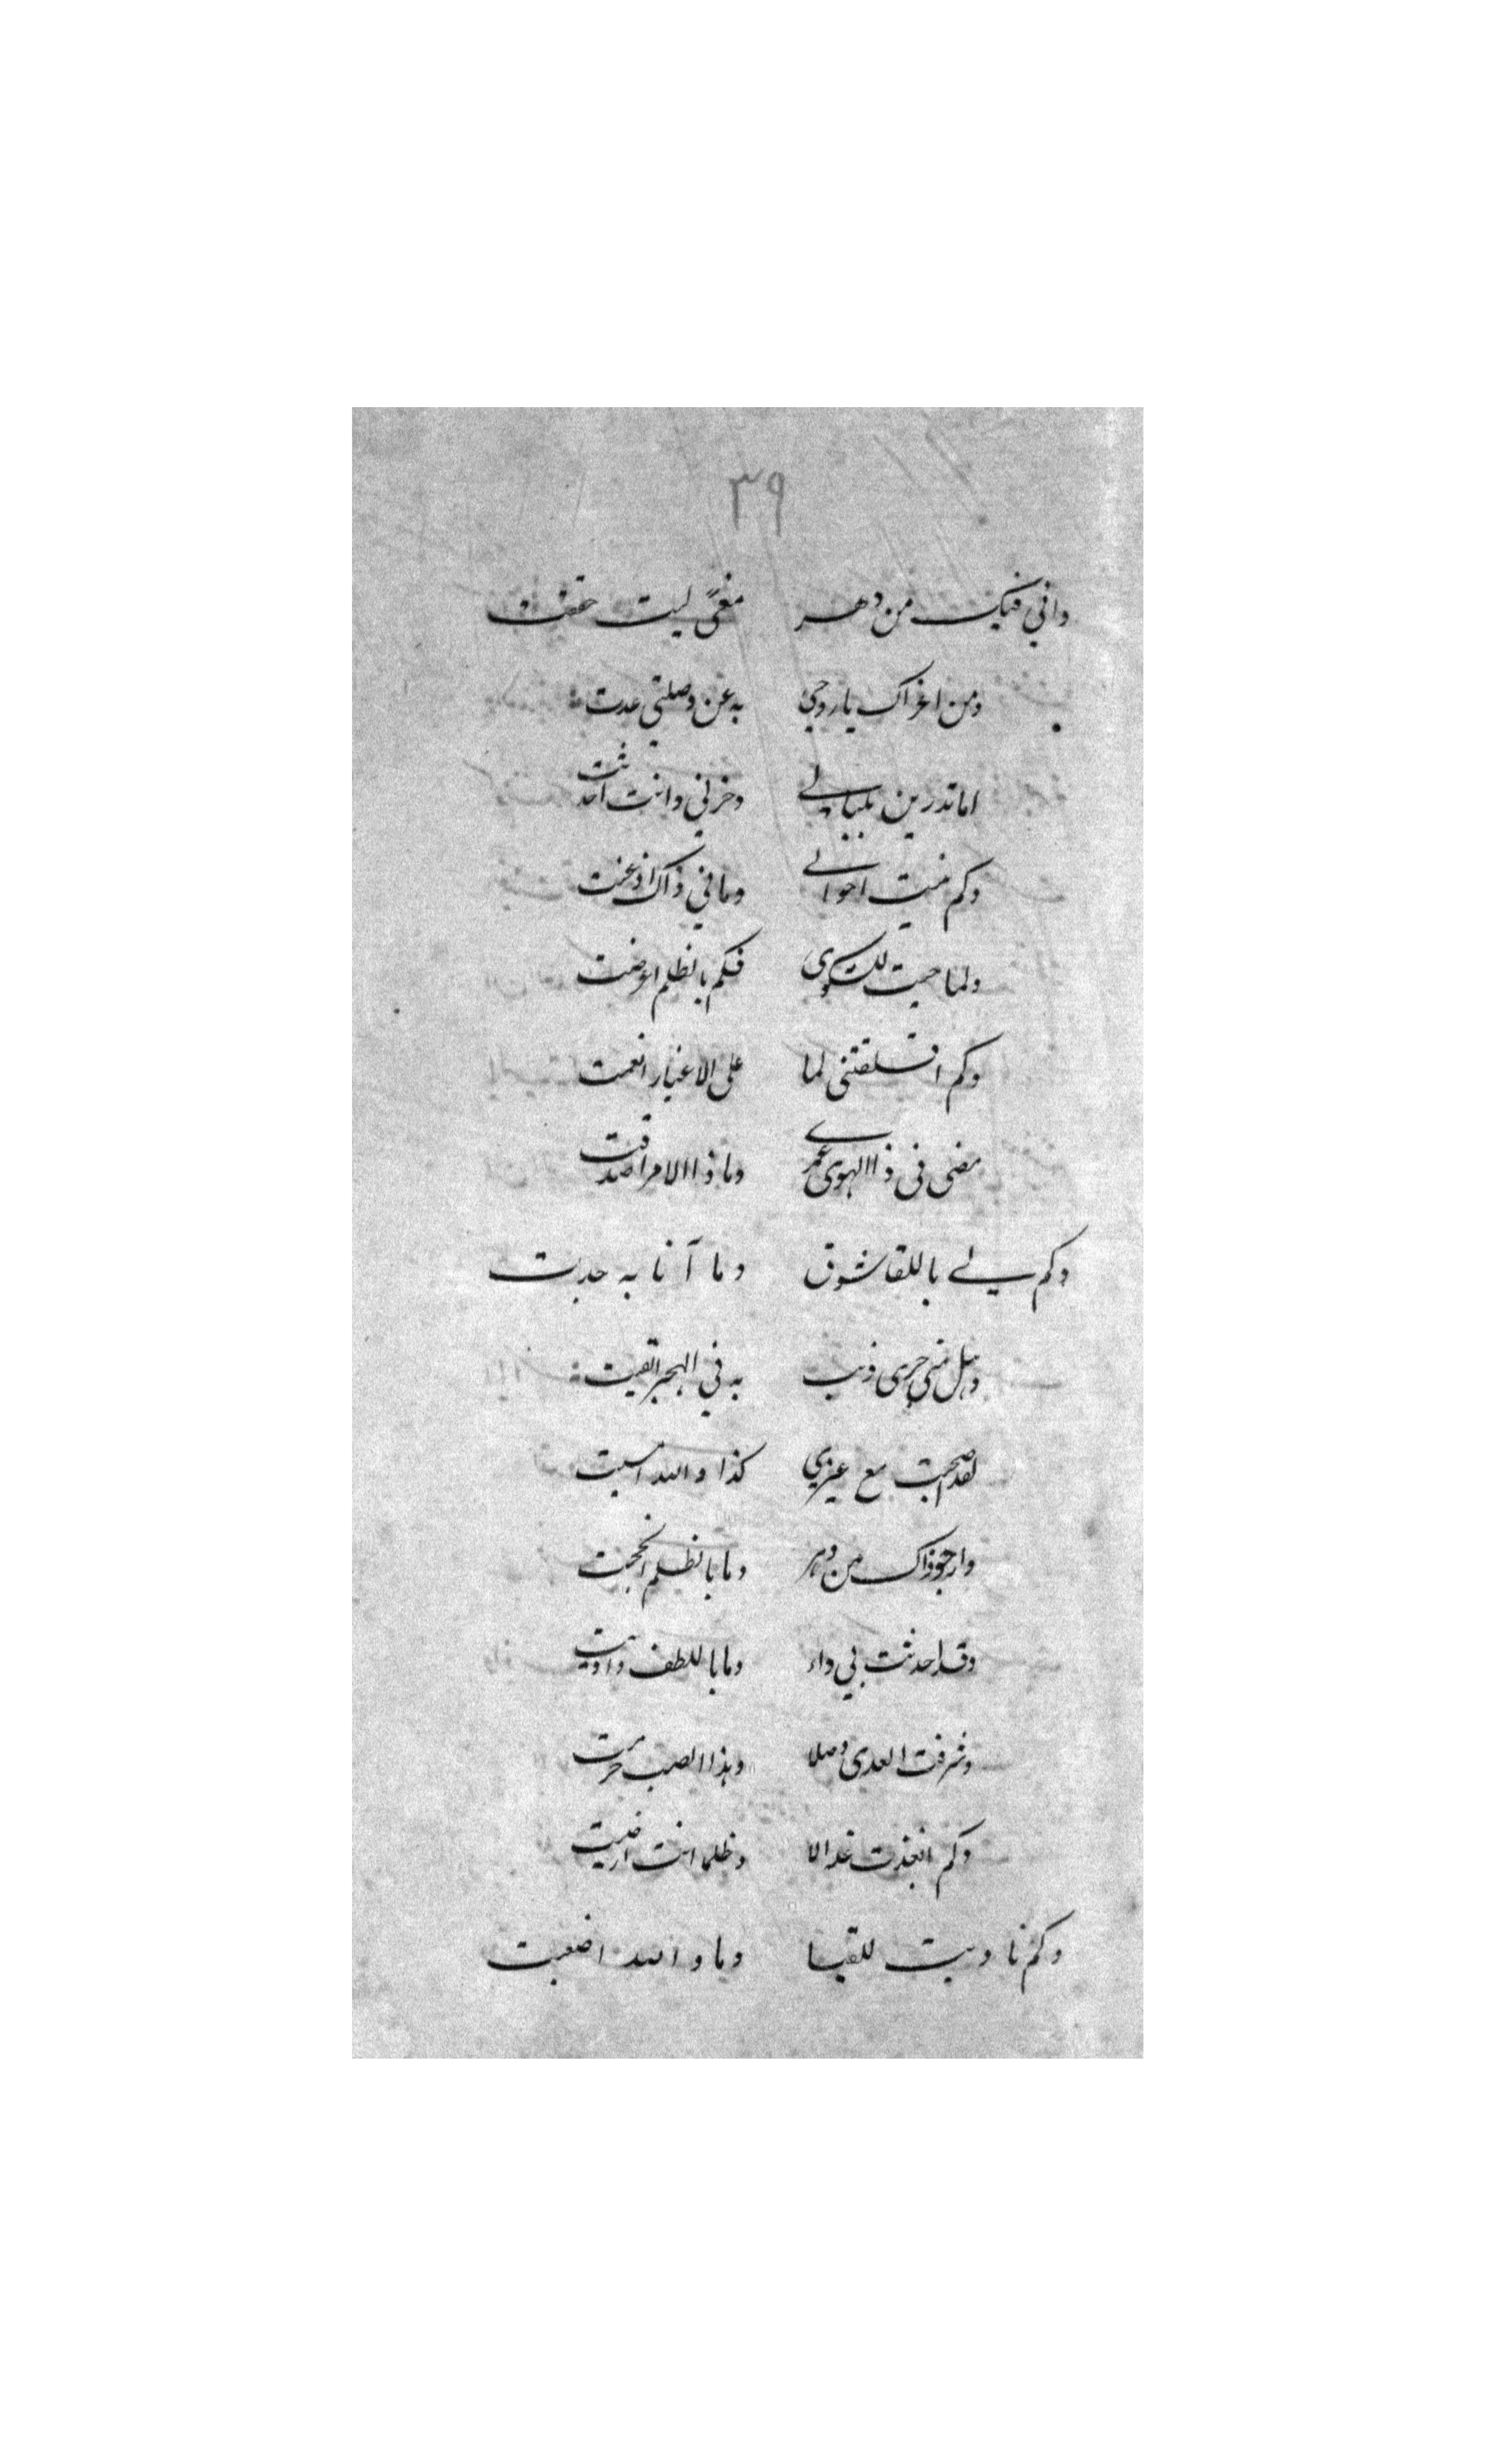 ٣٩
واني فيك من دهر مغمى ليت حققت
ومن اغراك ياروحي به عن وصلتي عدت
اما تدرين بلبالي وحزني وانت احدثت
وكم احوالي وما في ذاك اذ
ولما جيت للشكوى فكم بالظلم اعرضت
وكم اقلقتني لما على الاغيار انعمت
مضى في ذا الهوى عمري وما ذا الامر اصدقت
وكم لي باللقا شوق وما آنا به جدت
وهل مني جرى ذنب به في الهجر القيت
لقد اصبحت مع غيري كذا والله امسيت
وارجو ذاك من دهر وما بالظلم انججت
وقد احدثت بي داء وما باللطف داويت
وشرفت العدى وصلا وهذا الصب حرمت
وكم انعذت عذالا وظلما انت ارضيت
وكم ناديت للقيا وما والله اصغيت